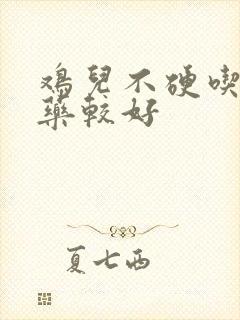 鸡兒不硬喫
藥較好
夏七西